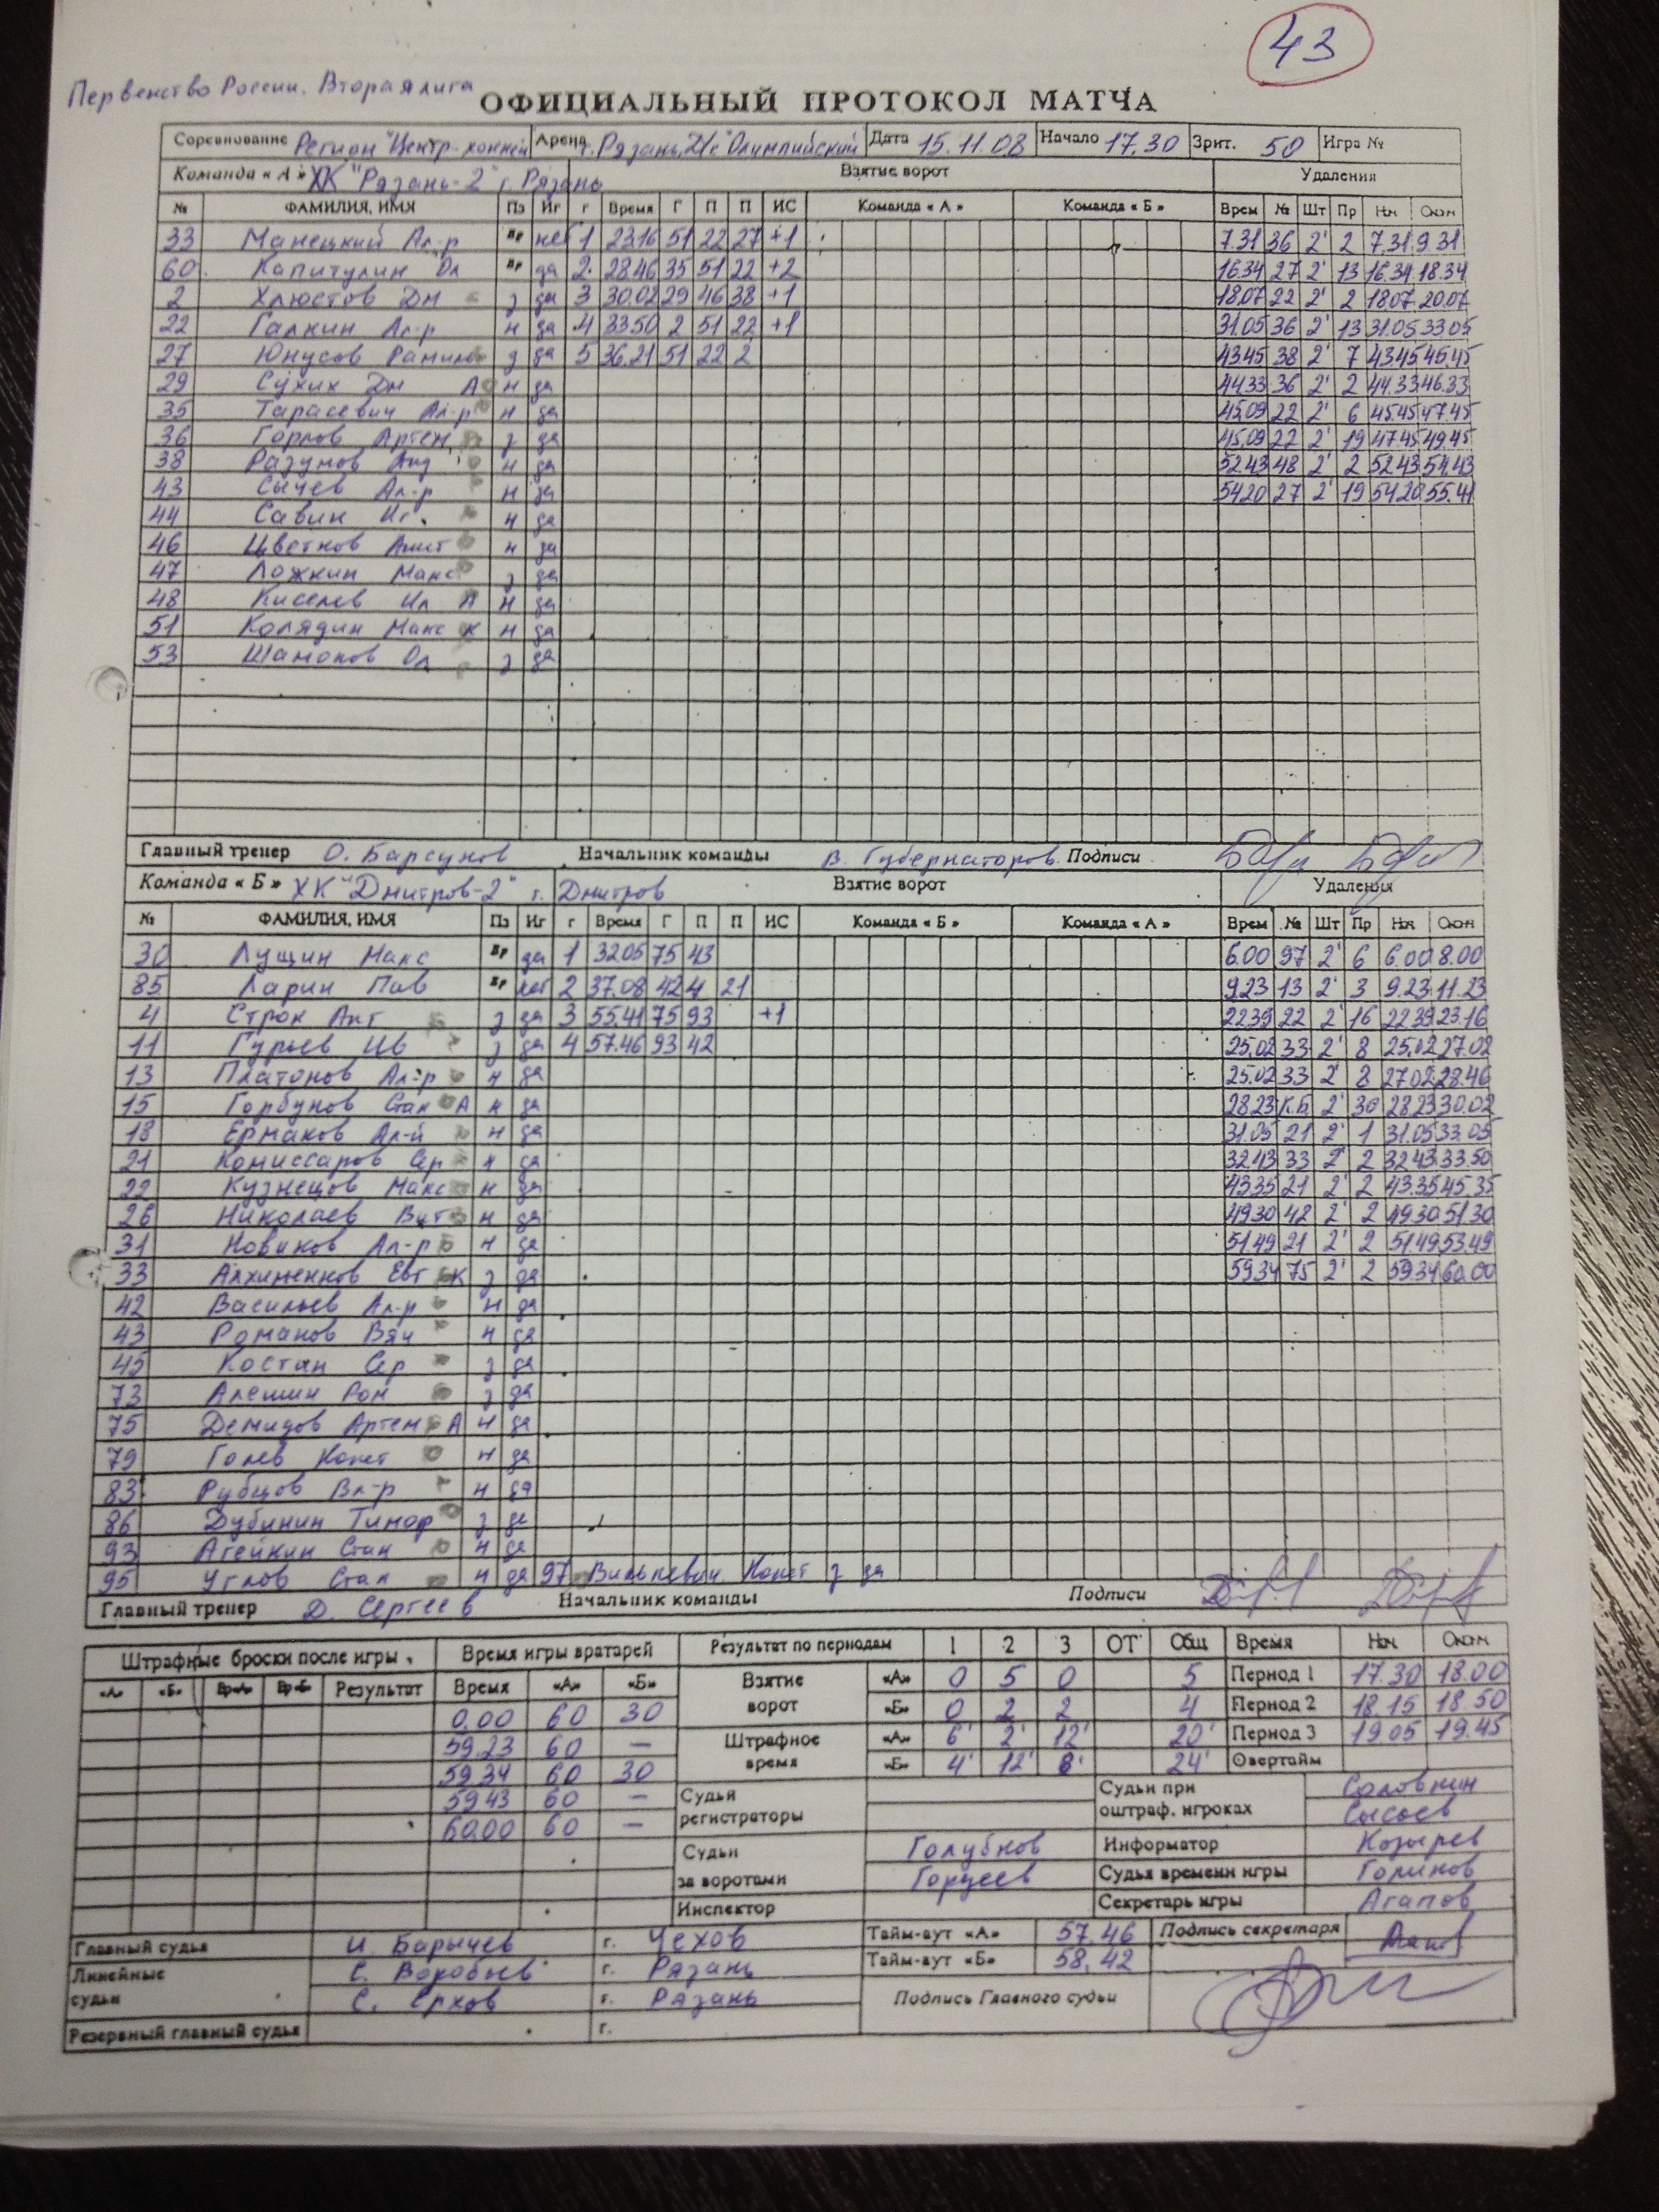 43
Первенство России. Вторая лига
ОФИЦИАЛЬНЫЙ ПРОТОКОЛ МАТЧА
Соревнование Регион "Центр-хоккей Арена г. Рязань, Д/с "Олимпийский Дата 15.11.08 Начало 17.30 Зрит. 50 Игра №
Команда «А» ХК "Рязань-2" г. Рязань Взятие ворот Удаления
№ ФАМИЛИЯ, ИМЯ Пз Иг г Время Г П П ИС Команда «А» Команда «Б» Врем № Шт Пр Нач Окон
33 Манецкий Ал-р вр нет 1 23.16 51 22 27 +1 7.31 36 2' 2 7.31 9.31
60 Капитулин Ол вр да 2 28.46 35 51 22 +2 16.34 27 2' 13 16.34 18.34
2 Хлюстов Дм з да 3 30.02 29 46 38 +1 18.07 22 2' 2 18.07 20.07
22 Галкин Ал-р н да 4 33.50 2 51 22 +1 31.05 36 2' 13 31.05 33.05
27 Юнусов Рамиль з да 5 36.21 51 22 2 43.45 38 2' 7 43.45 45.45
29 Сухих Дм А н да 44.33 36 2' 2 44.33 46.33
35 Тарасевич Ал-р н да 45.09 22 2' 6 45.45 47.45
36 Горлов Артем з да 45.09 22 2' 19 47.45 49.45
38 Разумов Анд н да 52.43 48 2' 2 52.43 54.43
43 Сычев Ал-р н да 54.20 27 2' 19 54.20 55.41
44 Савин Иг. н да
46 Цветков н да
47 Ложкин Макс з да
48 Киселев Ил А н да
51 Колядин Макс К н да
53 Шамонов Ол з да
Главный тренер О. Барсунов Начальник команды В. Губернаторов Подписи
Команда «Б» ХК "Дмитров-2" г. Дмитров Взятие ворот Удаления
№ ФАМИЛИЯ, ИМЯ Пз Иг г Время Г П П ИС Команда «Б» Команда «А» Врем № Шт Пр Нач Окон
30 Лущин Макс вр да 1 32.05 75 43 6.00 97 2' 6 6.00 8.00
85 Ларин Пав вр нет 2 37.08 42 4 21 9.23 13 2' 3 9.23 11.23
4 Строк Ант з да 3 55.41 75 93 +1 22.39 22 2' 16 22.39 23.16
11 Гурьев Ив з да 4 57.46 93 42 25.02 33 2' 8 25.02 27.02
13 Платонов Ал-р н да 25.02 33 2' 8 27.02 28.46
15 Горбунов Стан А н да 28.23 К.Б. 2' 30 28.23 30.02
18 Ермаков Ал-й н да 31.05 21 2' 1 31.05 33.05
21 Комиссаров Сер н да 32.43 33 2' 2 32.43 33.50
22 Кузнецов Макс н да 43.35 21 2' 2 43.35 45.35
26 Николаев Вит н да 49.30 42 2' 2 49.30 51.30
31 Новиков Ал-р н да 51.49 21 2' 2 51.49 53.49
33 Алхименков Евг К з да 59.34 75 2' 2 59.34 60.00
42 Васильев Ал-р н да
43 Романов Вяч н да
45 Костан Сер з да
73 Алешин Ром з да
75 Демидов Артем А н да
79 Голев Конст н да
83 Рубцов Вл-р н да
86 Дубинин Тимоф з да
93 Агейкин Стан н да
95 Углов Стан н да 97 Вилькевич Конст з да
Главный тренер Д. Сергеев Начальник команды Подписи
Штрафные броски после игры Время игры вратарей Результат по периодам 1 2 3 ОТ Общ Время Нач Окон
«А» «Б» Вр«А» Вр«Б» Результат Время «А» «Б» Взятие ворот «А» 0 5 0 5 Период 1 17.30 18.00
0.00 60 30 «Б» 0 2 2 4 Период 2 18.15 18.50
59.23 60 — Штрафное время «А» 6' 2' 12' 20' Период 3 19.05 19.45
59.34 60 30 «Б» 4' 12' 8' 24' Овертайм
59.43 60 — Судьи регистраторы Судьи при оштраф. игроках Соловкин
60.00 60 — Сысоев
Судьи за воротами Голубков Информатор Козырев
Горцеев Судья времени игры Голиков
Инспектор Секретарь игры Агапов
Главный судья И. Барычев г. Чехов Тайм-аут «А» 57.46 Подпись секретаря
Линейные судьи С. Воробьев г. Рязань Тайм-аут «Б» 58.42
С. Ерхов г. Рязань Подпись Главного судьи
Резервный главный судья г.